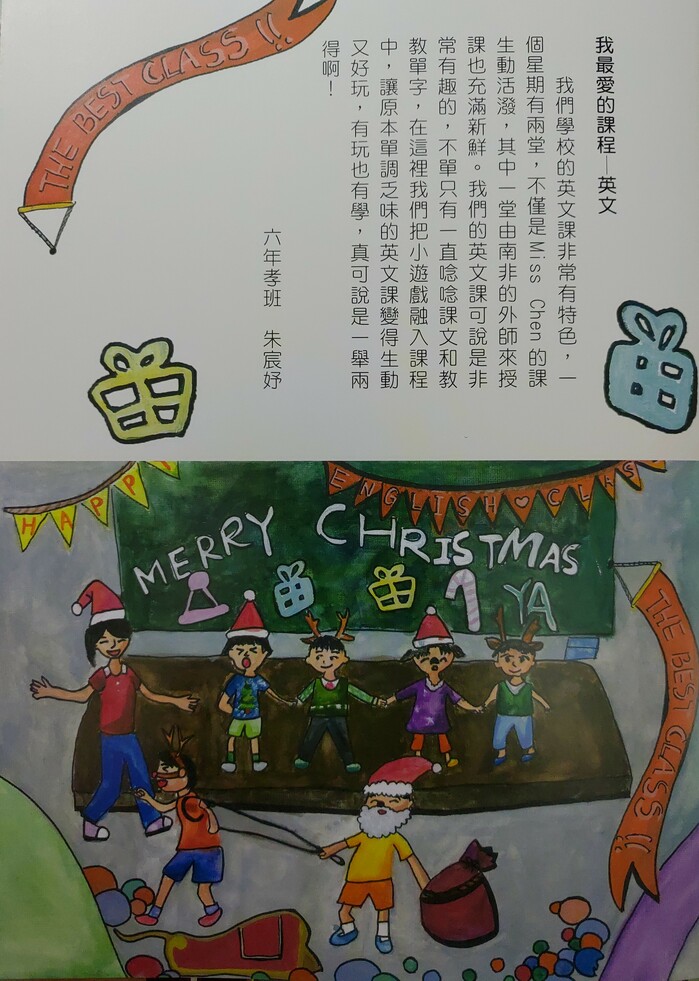 我最愛的課程─英文
我們學校的英文課非常有特色，一
個星期有兩堂，不僅是Miss Chen 的課
生動活潑，其中一堂由南非的外師來授
課也充滿新鮮。我們的英文課可說是非
常有趣的，不單只有一直唸唸課文和教
教單字，在這裡我們把小遊戲融入課程
中，讓原本單調乏味的英文課變得生動
又好玩，有玩也有學，真可說是一舉兩
得啊！
六年孝班 朱宸妤
THE BEST CLASS !!
HAPPY
ENGLISH♥CLAS
MERRY CHRISTMAS
YA
THE BEST CLASS !!